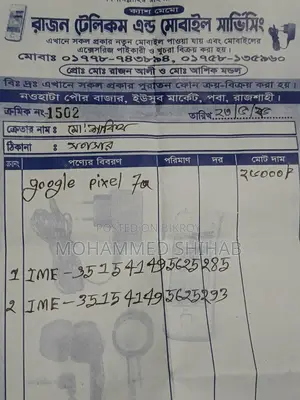 ক্যাশ মেমো
রাজন টেলিকম এন্ড মোবাইল সার্ভিসিং
এখানে সকল প্রকার নতুন মোবাইল পাওয়া যায় এবং মোবাইলের
এক্সেসরিজ পাইকারী ও খুচরা বিক্রয় করা হয়।
প্রোঃ মোঃ রাজন আলী ও মোঃ আশিক মন্ডল
বিঃ দ্রঃ এখানে সকল প্রকার পুরাতন ফোন ক্রয়-বিক্রয় করা হয়।
নওহাটা পৌর বাজার, ইউসুব মার্কেট, পবা, রাজশাহী।
ক্রমিক নং 1502 তারিখ
ক্রেতার নাম : মো:
ঠিকানা :
নং পণ্যের বিবরণ পরিমাণ দর মোট দাম
google pixel 7a
POSTED ON BIKROY
MOHAMMED SHIHAB
1 IME-351541495625285
2 IME-351541495625293